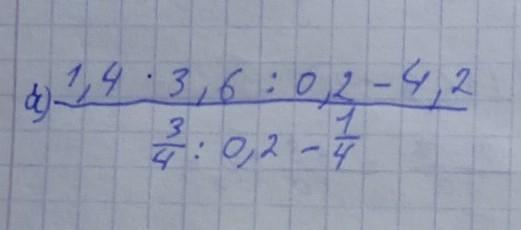 а) 1,4 · 3,6 : 0,2 - 4,2
3/4 : 0,2 - 1/4